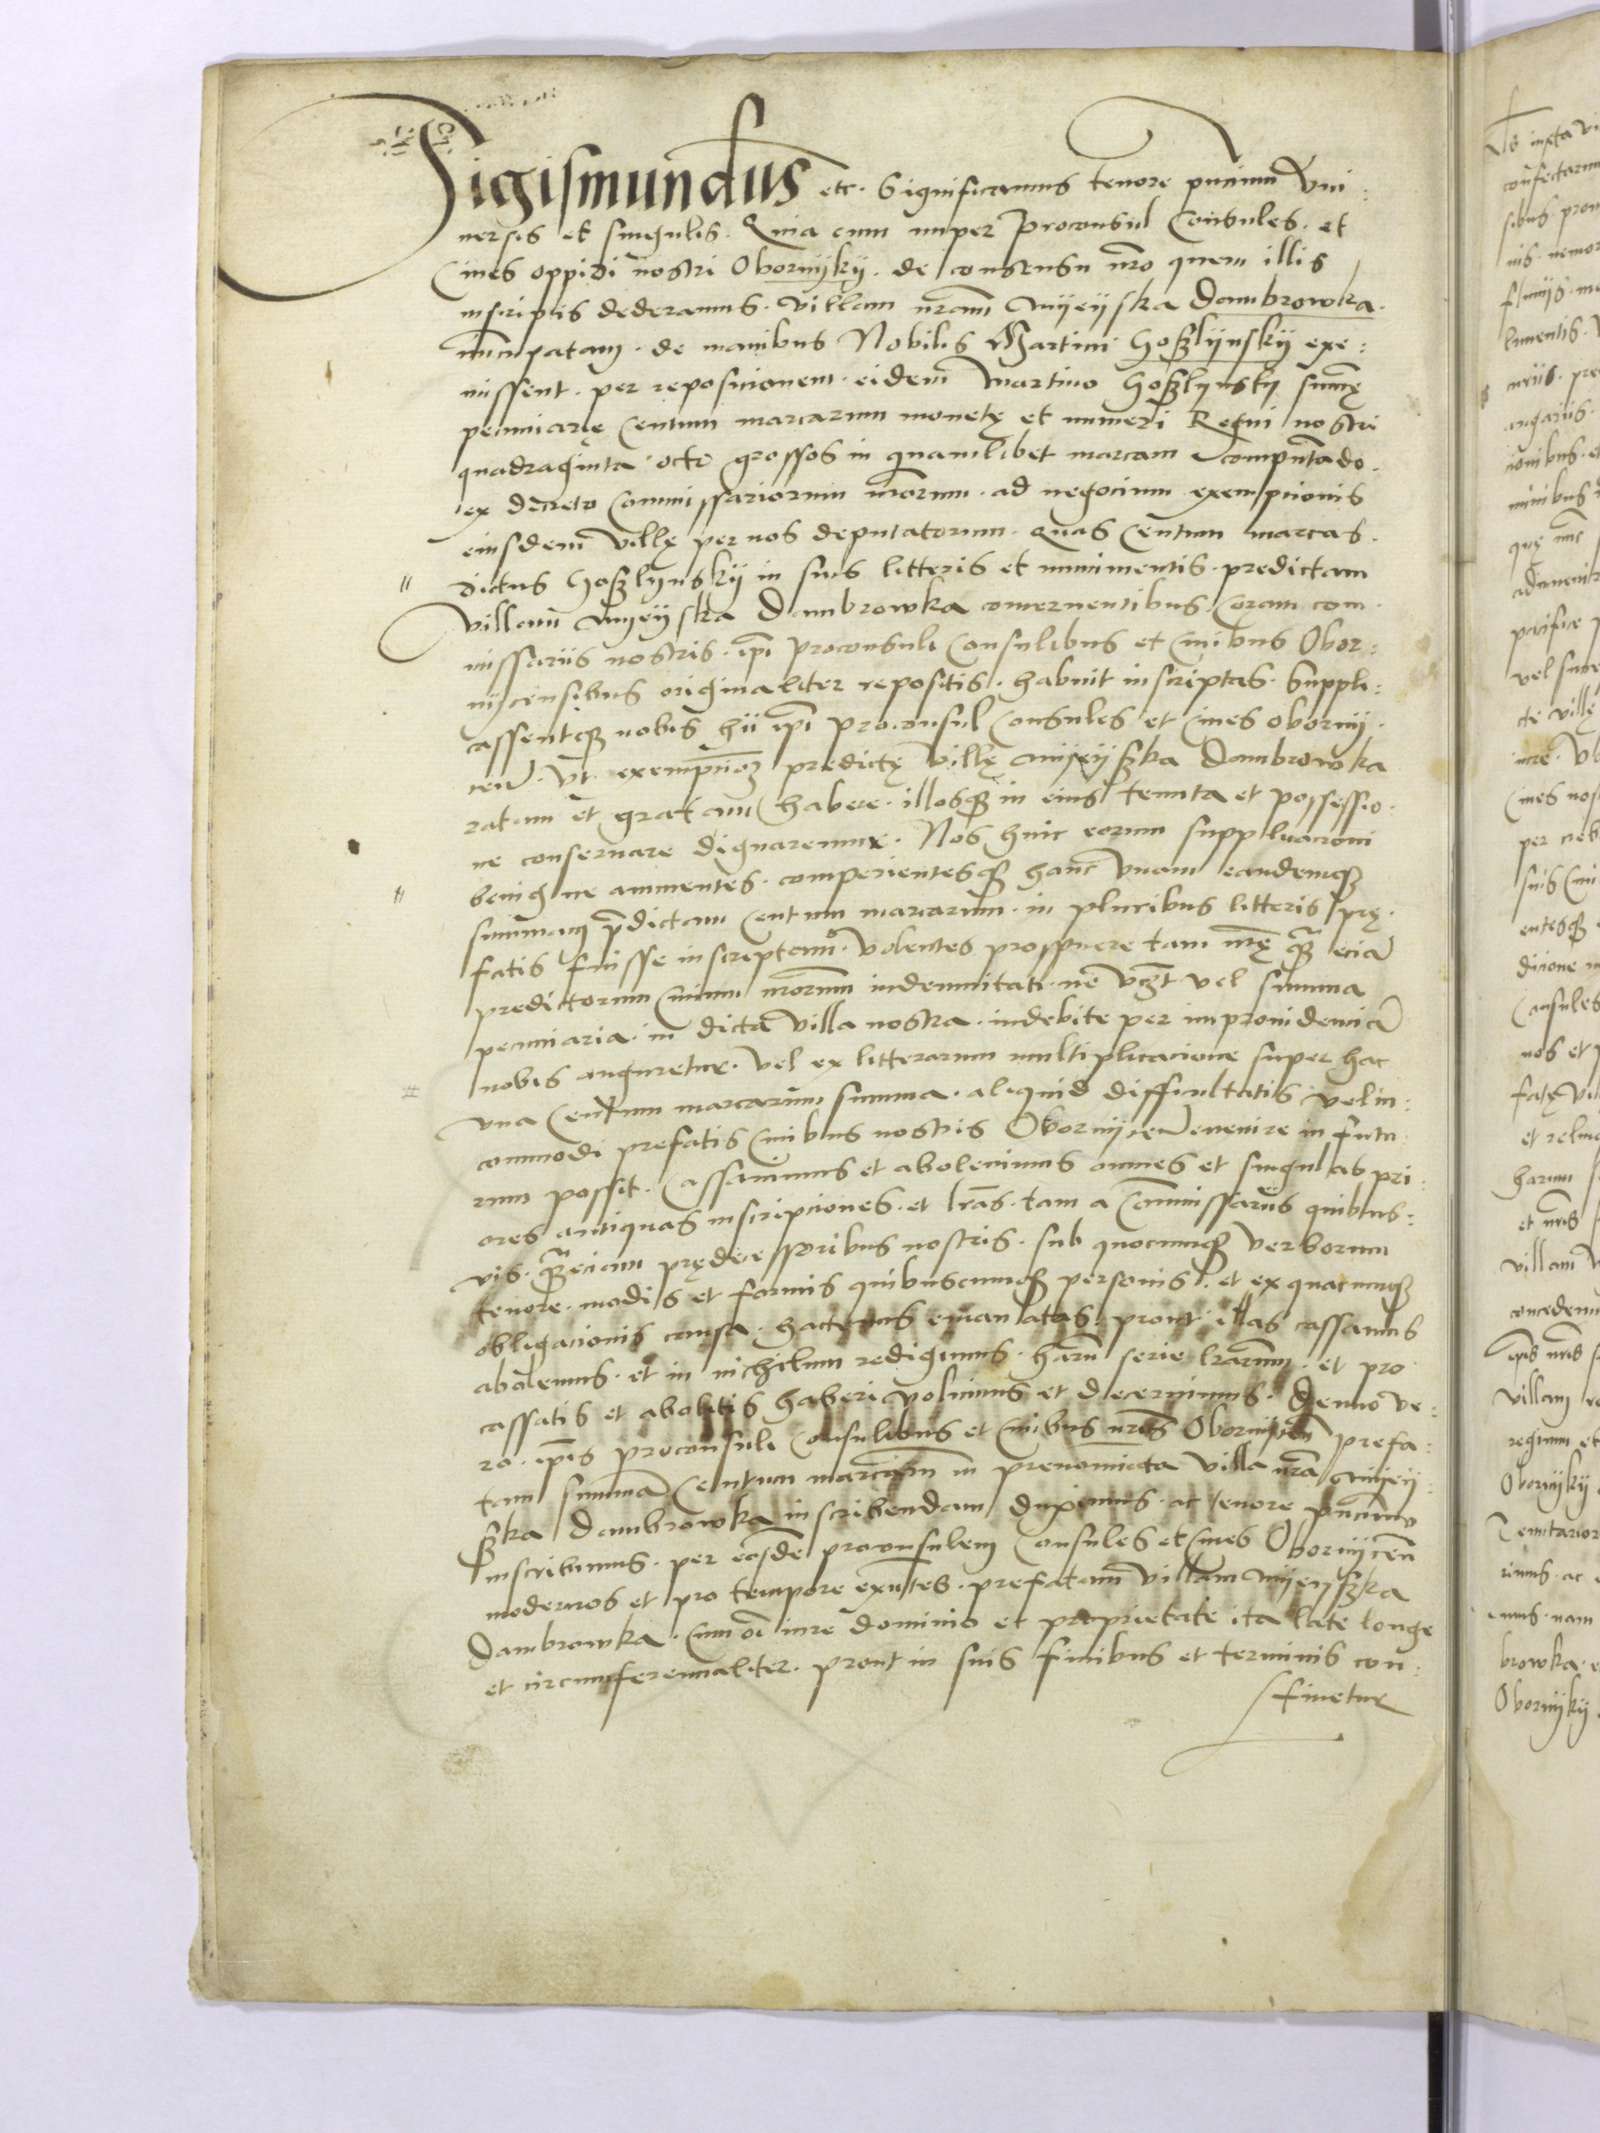 Sigismundus etc. Significamus tenore pñcium Vni:
uersis et singulis. Quia cum nuper Proconsul Consules. et
Ciues oppidi nostri Obornijkij. de consensu nr̃o quem illis
inscriptis dederamus. Villam nrãm Mijeijska Dambrowka.
nuncupatam. de manibus Nobilis Martini Gosslijnskij exe:
missent. per reposicionem. eidem Martino Gosslijnskij sum̃ę
pecuniarię Centum marcarum monetę et numeri Regni nostri
quadraginta octo grossos in quamlibet marcam Computãdo.
ex decreto Commissariorum nr̃orum. ad negocium exempcionis
eiusdem Villę per nos deputatorum. quas Centum marcas.
dictus Gosslijnskij in suis litteris et munimentis. predictam
Villam Mijeijska Dambrowka concernentibus. Coram com
missarijs nostris. ip̃i Proconsuli Consulibus et Ciuibus Obor:
nijcensibus originaliter repositis. habuit inscriptas. Suppli:
cassentqʒ nobis hij ip̃i Proconsul Consules et Ciues Obornij.
ceñ. Vt exempcioñʒ predictę Villę Mijeijska Dambrowka
ratam et gratam habere. illosqʒ in eius tenuta et possessio.
ne conseruare dignaremur. Nos huic eorum supplicacioni
benigne annuentes. comperientesqʒ hanc Vnam eandemqʒ
summam p̃dictam Centum marcarum. in pluribus litteris prę.
fatis fuisse inscriptam. Volentes prospicere tam nr̃ę qʒ̃ eciã
predictorum Ciuium nr̃orum indemnitati. ne Vʒt vel summa
pecuniaria. in dicta Villa nostra. indebite per improuidenciã
nobis augeretur. Vel ex litterarum multiplicacione super hac
vna Centum marcarum summa. aliquid difficultatis vel in:
commodi prefatis Ciuibus nostris Obornijceñ euenire in futu
rum possit. Cassauimus et aboleuimus omnes et singulas pri:
ores antiquas inscripciones. et lr̃as. tam a Com̃issarijs quibus:
vis. qʒ̃ eciam prędecessoribus nostris. sub quocumqʒ Verborum
tenore. modis et formis quibuscumqʒ personis. et ex quacumqʒ
obligacionis causa. hactenus emanatas. prout illas cassamus
abolemus. et in nichilum redigimus. harũ serie lr̃arum. et pro
cassatis et abolitis haberi volumus et decernimus. Denuo ve:
ro. ip̃is Proconsuli Consulibus et Ciuibus nr̃is Obornijceñ prefa:
tam summã Centum marcarum in prenominata Villa nrã Mijeij:
ska Dambrowka inscribendam duximus. ac tenore pñcium
inscribimus. per eosdẽ proconsulem Consules et Ciues Obornijceñ
modernos et pro tempore exñtes. prefatam Villam Mijeijska
Dambrowka. Cum oĩ iure dominio et proprietate ita late longe
et circumferencialiter. prout in suis finibus et terminis con:
sfinetur